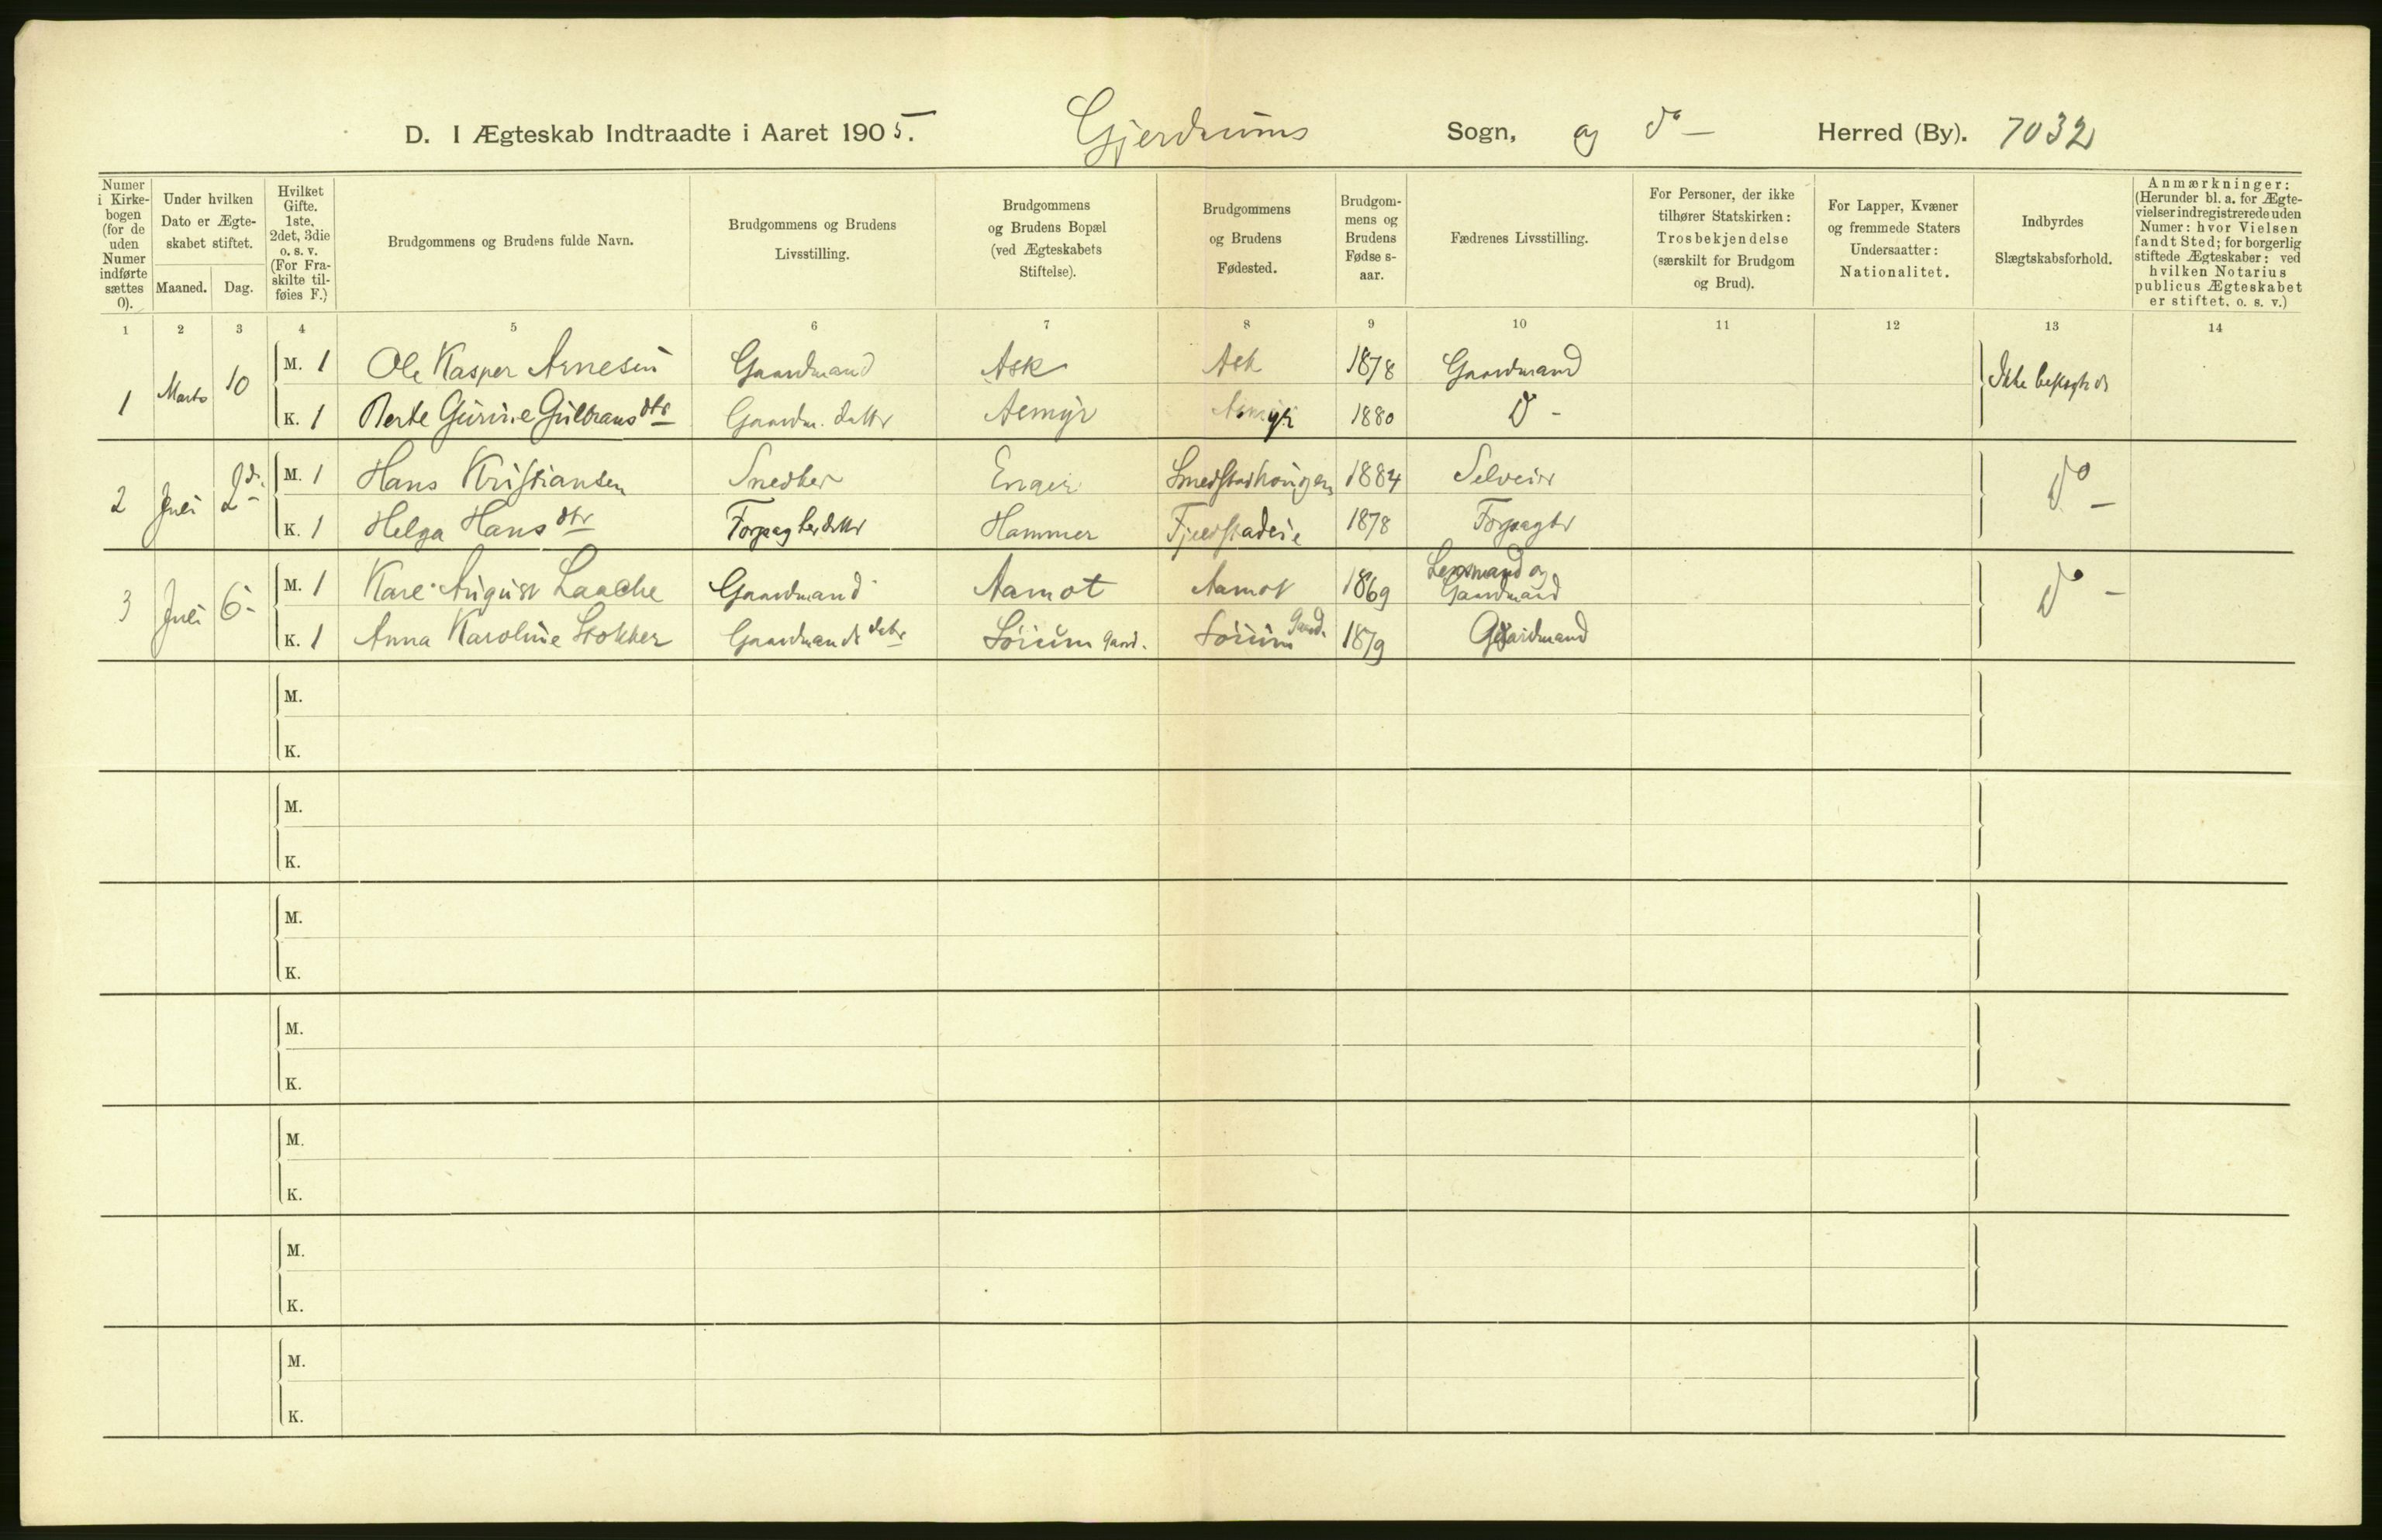 D. I Ægteskab Indtraadte i Aaret 1905. Gjerdrums Sogn, og do — Herred (By). 7032
Numer i Kirkebogen (for de uden Numer indførte sættes 0).
Under hvilken Dato er Ægteskabet stiftet.
Maaned. Dag.
Hvilket Gifte. 1ste, 2det, 3die o. s. v. (For Fraskilte tilføies F.)
Brudgommens og Brudens fulde Navn.
Brudgommens og Brudens Livsstilling.
Brudgommens og Brudens Bopæl (ved Ægteskabets Stiftelse).
Brudgommens og Brudens Fødested.
Brudgommens og Brudens Fødselsaar.
Fædrenes Livsstilling.
For Personer, der ikke tilhører Statskirken: Trosbekjendelse (særskilt for Brudgom og Brud).
For Lapper, Kvæner og fremmede Staters Undersaatter: Nationalitet.
Indbyrdes Slægtskabsforhold.
Anmærkninger: (Herunder bl. a. for Ægtevielser indregistrerede uden Numer: hvor Vielsen fandt Sted; for borgerlig stiftede Ægteskaber: ved hvilken Notarius publicus Ægteskabet er stiftet. o. s. v.)
1 2 3 4 5 6 7 8 9 10 11 12 13 14
1 Marts 10 M. 1 Ole Kasper Arnesen Gaardmand Ask Ask 1878 Gaardmand Ikke beslægtede
K. 1 Berte Gurine Gulbransdtr Gaardm. datter Aemyr 1880 Do -
2 Juli 2 M. 1 Hans Kristiansen Snedker Enger 1884 Selveier Do —
K. 1 Helga Hansdtr Forpagterdatter Hammer Fjeldstadeie 1878 Forpagter
3 Juli 6 - M. 1 Karl August Laache Gaardmand Aamot Aamot 1869 Lensmand og Gaardmand Do —
K. 1 Anna Karoline Stokker Gaardmands datr Sörum Gaard. Sörum Gaard. 1879 Gaardmand
M.
K.
M.
K.
M.
K.
M.
K.
M.
K.
M.
K.
M.
K.